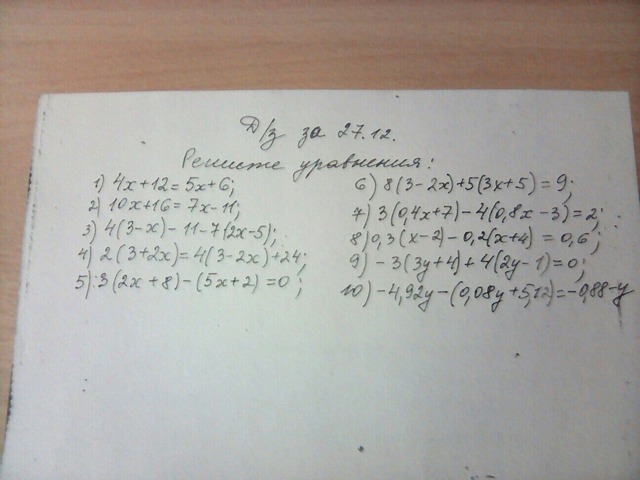 Д/з за 27.12.
Решите уравнения:
1) 4x+12=5x+6;
2) 10x+16=7x-11;
3) 4(3-x)-11-7(2x-5);
4) 2(3+2x)=4(3-2x)+24;
5) 3(2x+8)-(5x+2)=0;
6) 8(3-2x)+5(3x+5)=9;
7) 3(0,4x+7)-4(0,8x-3)=2;
8) 0,3(x-2)-0,2(x+4)=0,6;
9) -3(3y+4)+4(2y-1)=0;
10) -4,92y-(0,08y+5,12)=-0,88-y